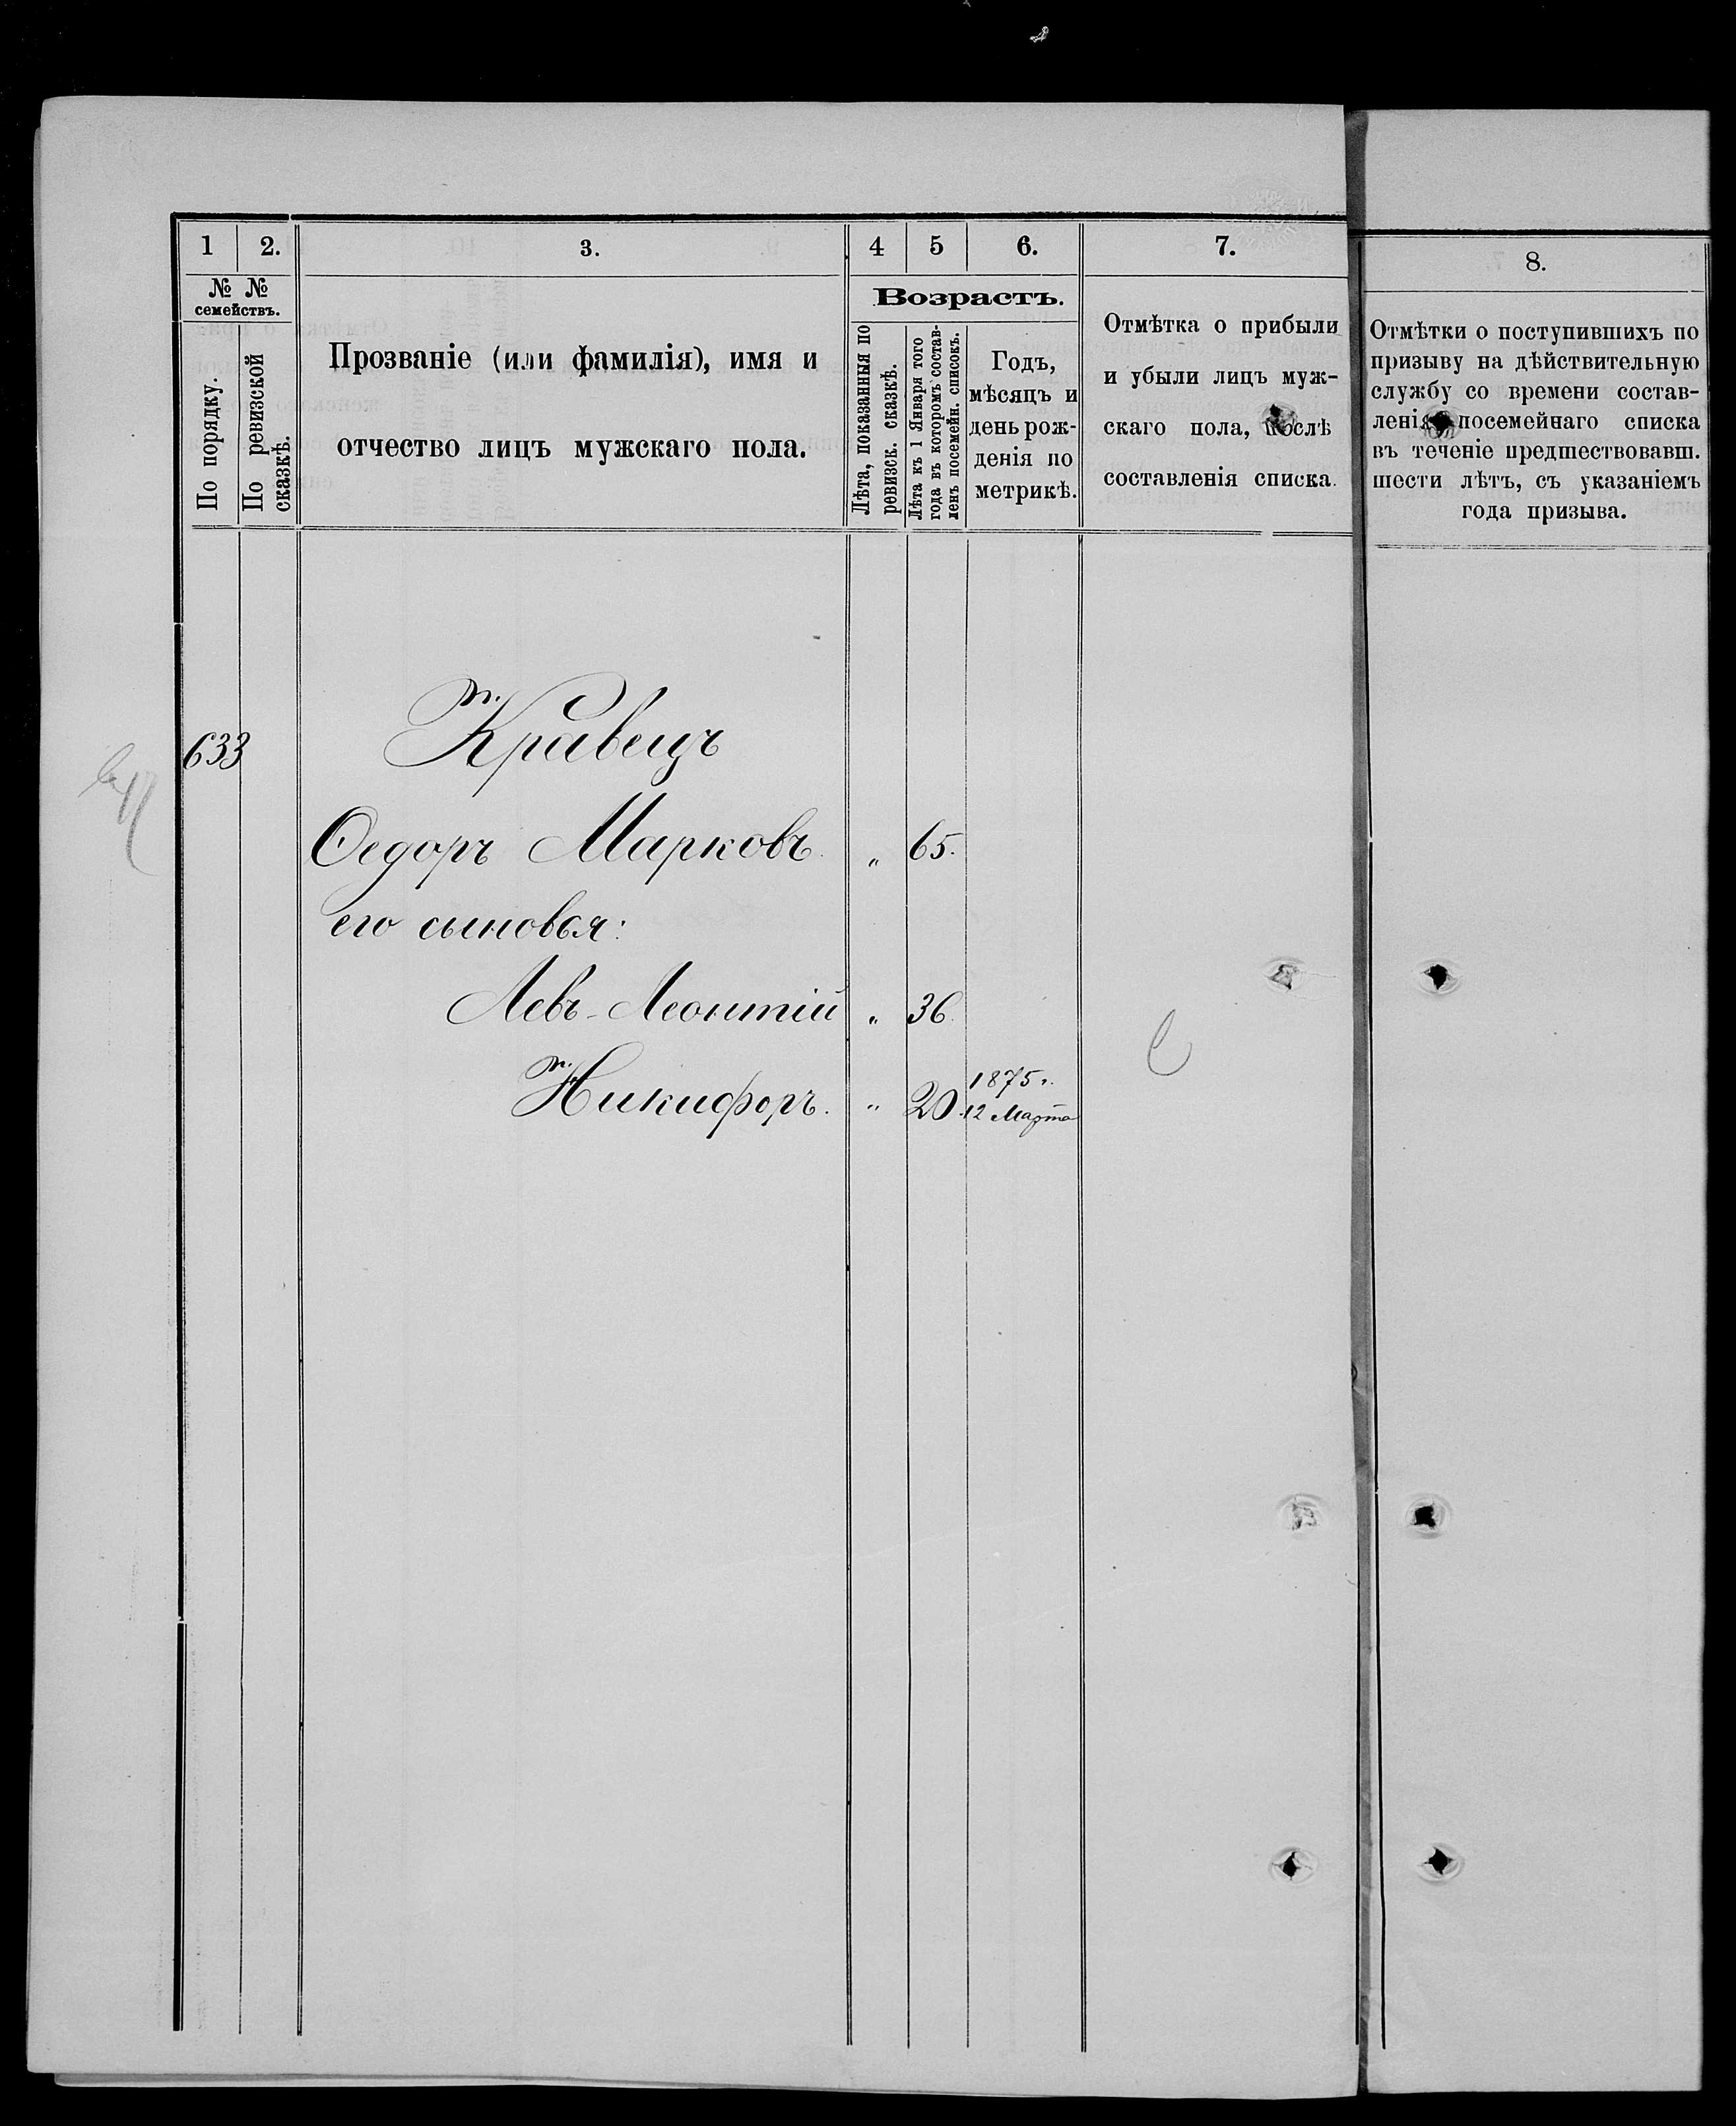 1 2. 3. 4 5 6. 7. 8.
№ №
семействъ.
По порядку.
По ревизской
сказкѣ.
Прозваніе (или фамилія), имя и
отчество лицъ мужскаго пола.
Возрастъ.
Лѣта, показанныя по
ревизск. сказкѣ.
Лѣта къ 1 Января того
года въ которомъ состав-
ленъ посемейн. списокъ.
Годъ,
мѣсяцъ и
день рож-
денія по
метрикѣ.
Отмѣтка о прибыли
и убыли лицъ муж-
скаго пола, послѣ
составленія списка.
Отмѣтки о поступившихъ по
призыву на дѣйствительную
службу со времени состав-
ленія посемейнаго списка
въ теченіе предшествовавш.
шести лѣтъ, съ указаніемъ
года призыва.
633 Кравецъ
Ѳедоръ Марковъ. „ 65.
его сыновья:
Левъ-Леонтій „ 36.
Никифоръ. „ 20. 1875 г.
12 Марта